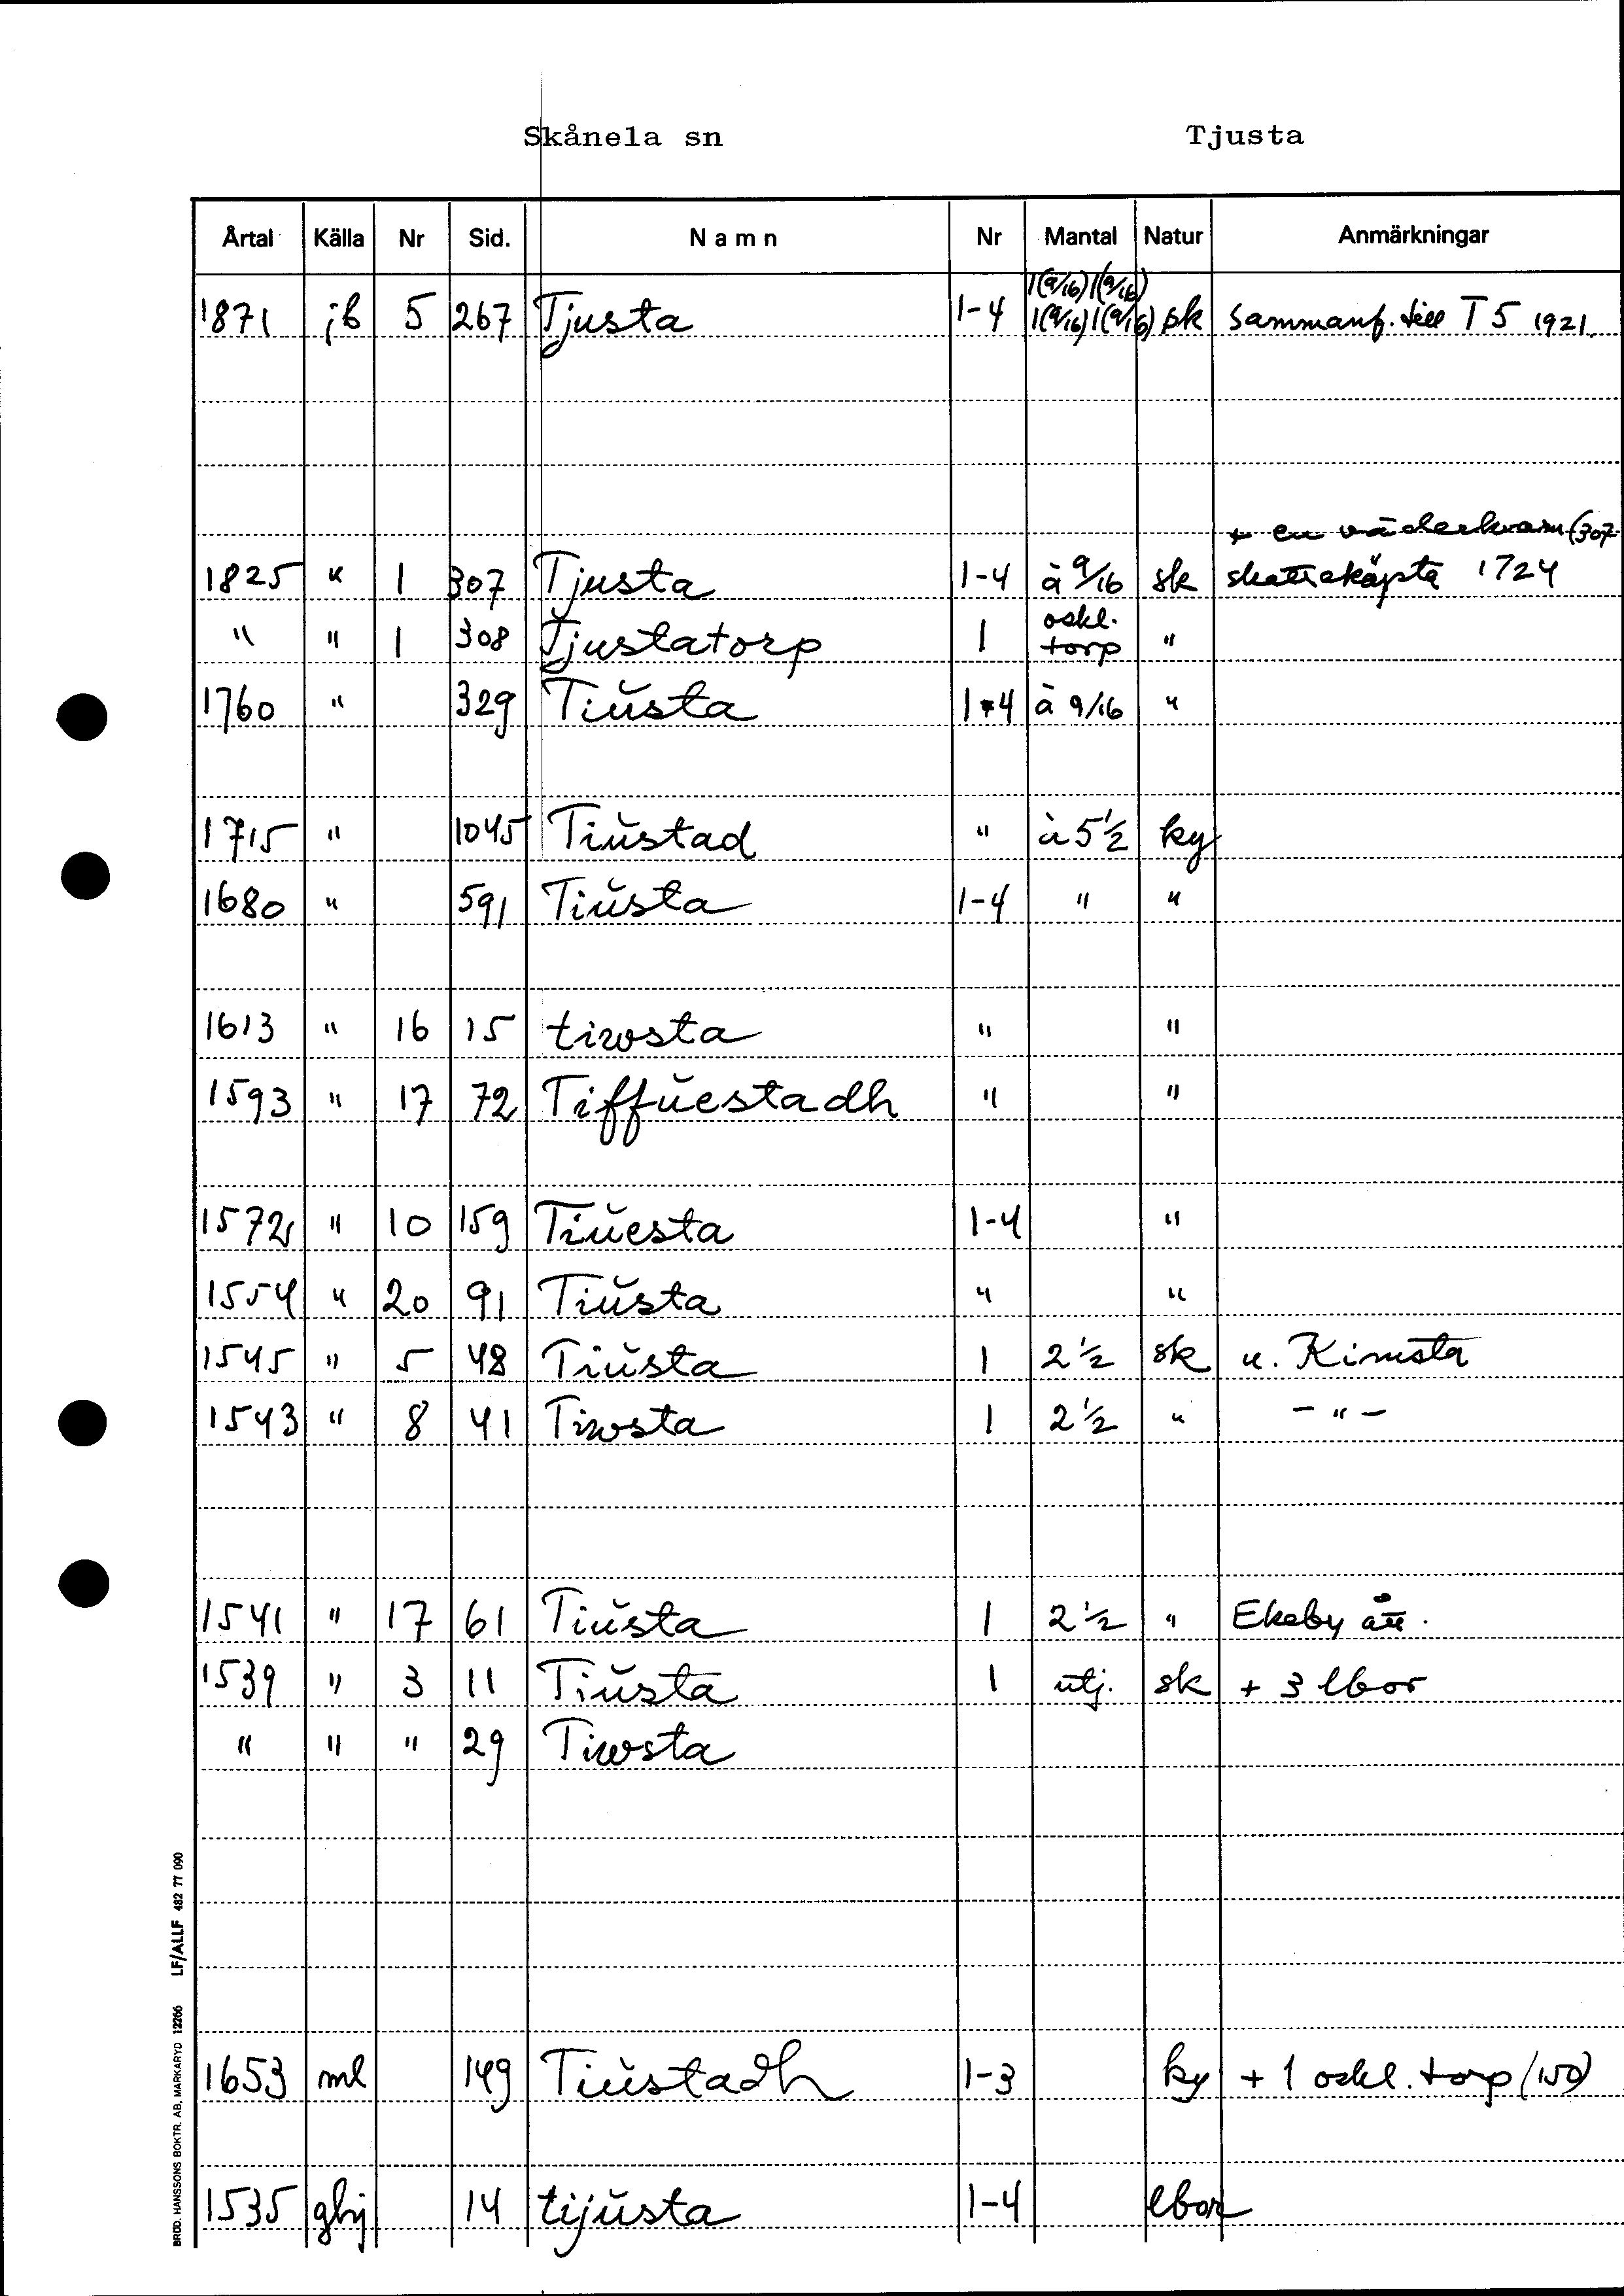 Skånela sn Tjusta
Årtal Källa Nr Sid. Namn Nr Mantal Natur Anmärkningar
1(9/16) 1(9/16)
1871 jb 5 267 Tjusta 1-4 1(9/16) 1(9/16) sk sammanf. till T 5 1921
+ en väderkvarn (307
1825 " 1 307 Tjusta 1-4 à 9/16 sk skatteköpta 1724
oskl.
" " 1 308 Tjustatorp 1 torp "
1760 " 329 Tiŭsta 1-4 à 9/16 "
1715 " 1045 Tiŭstad " à 5 1/2 ky
1680 " 591 Tiŭsta 1-4 " "
1613 " 16 15 tiwsta " "
1593 " 17 72 Tiffŭestadh " "
1572 " 10 159 Tiŭesta 1-4 "
1554 " 20 91 Tiŭsta " "
1545 " 5 48 Tiŭsta 1 2 1/2 sk u. Kimsta
1543 " 8 41 Tiwsta 1 2 1/2 " - " -
1541 " 17 61 Tiŭsta 1 2 1/2 " Ekebyått.
1539 " 3 11 Tiŭsta 1 utj. sk + 3 lbor
" " " 29 Tiwsta
1653 ml 149 Tiŭstadh 1-3 ky + 1 oskl. torp (150)
1535 ghj 14 tijŭsta 1-4 lbor
BRÖD. HANSSONS BOKTR. AB, MARKARYD 12266 LF/ALLF 482 77 090